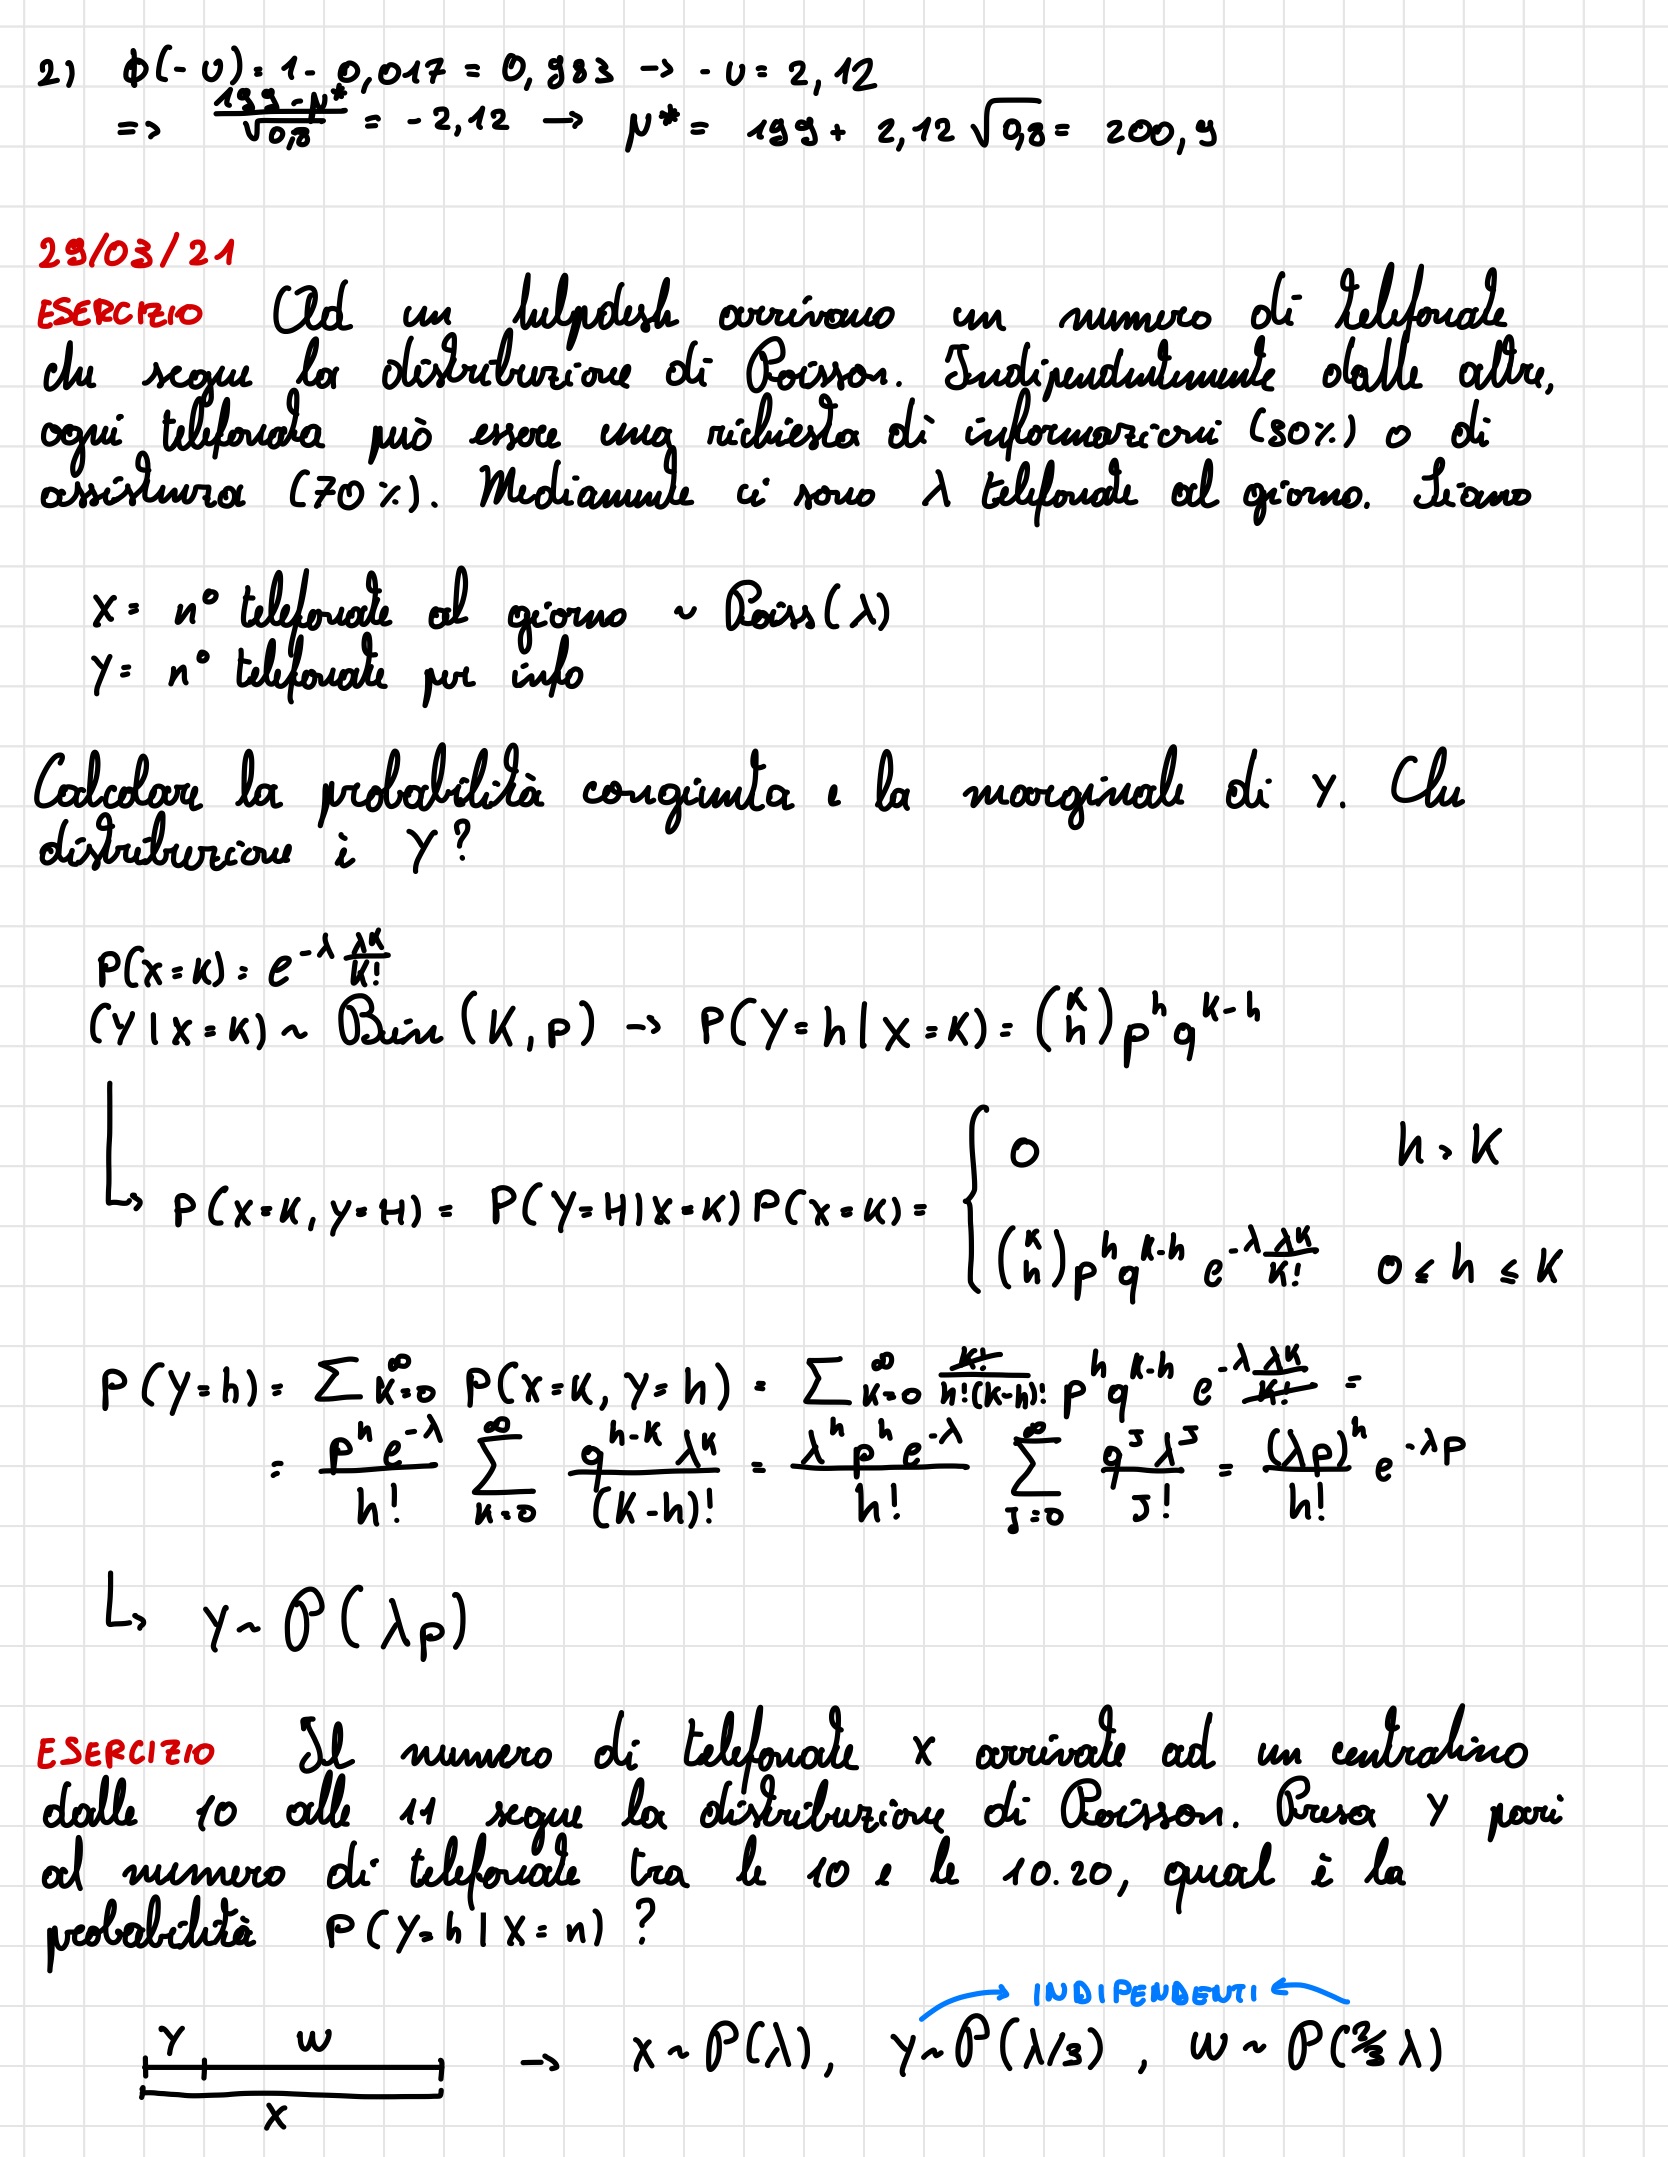 2) ϕ(-υ) = 1 - 0,017 = 0,983 -> -υ = 2,12
=> (199 - μ*)/√0,8 = -2,12 → μ* = 199 + 2,12 √0,8 = 200,9
29/03/21
ESERCIZIO Ad un helpdesk arrivano un numero di telefonate
che segue la distribuzione di Poisson. Indipendentemente dalle altre,
ogni telefonata può essere una richiesta di informazioni (30%) o di
assistenza (70%). Mediamente ci sono λ telefonate al giorno. Siano
X = n° telefonate al giorno ~ Poiss(λ)
Y = n° telefonate per info
Calcolare la probabilità congiunta e la marginale di Y. Che
distribuzione è Y?
P(X=K) = e^{-λ} λ^K/K!
(Y|X=K) ~ Bin (K,p) -> P(Y=h|X=K) = (K h) p^h q^{K-h}
0 h > K
↳ P(X=K, Y=H) = P(Y=H|X=K) P(X=K) = {
(K h) p^h q^{K-h} e^{-λ} λ^K/K! 0 ≤ h ≤ K
P(Y=h) = ∑_{K=0}^∞ P(X=K, Y=h) = ∑_{K=0}^∞ K!/(h!(K-h)!) p^h q^{K-h} e^{-λ} λ^K/K! =
= (p^h e^{-λ})/h! ∑_{K=0}^∞ (q^{h-K} λ^K)/(K-h)! = (λ^h p^h e^{-λ})/h! ∑_{J=0}^∞ (q^J λ^J)/J! = (λp)^h/h! e^{-λp}
↳ Y ~ P(λp)
ESERCIZIO Il numero di telefonate X arrivate ad un centralino
dalle 10 alle 11 segue la distribuzione di Poisson. Presa Y pari
al numero di telefonate tra le 10 e le 10.20, qual è la
probabilità P(Y=h|X=n)?
→ INDIPENDENTI ←
Y W → X ~ P(λ), Y ~ P(λ/3), W ~ P(2/3 λ)
X